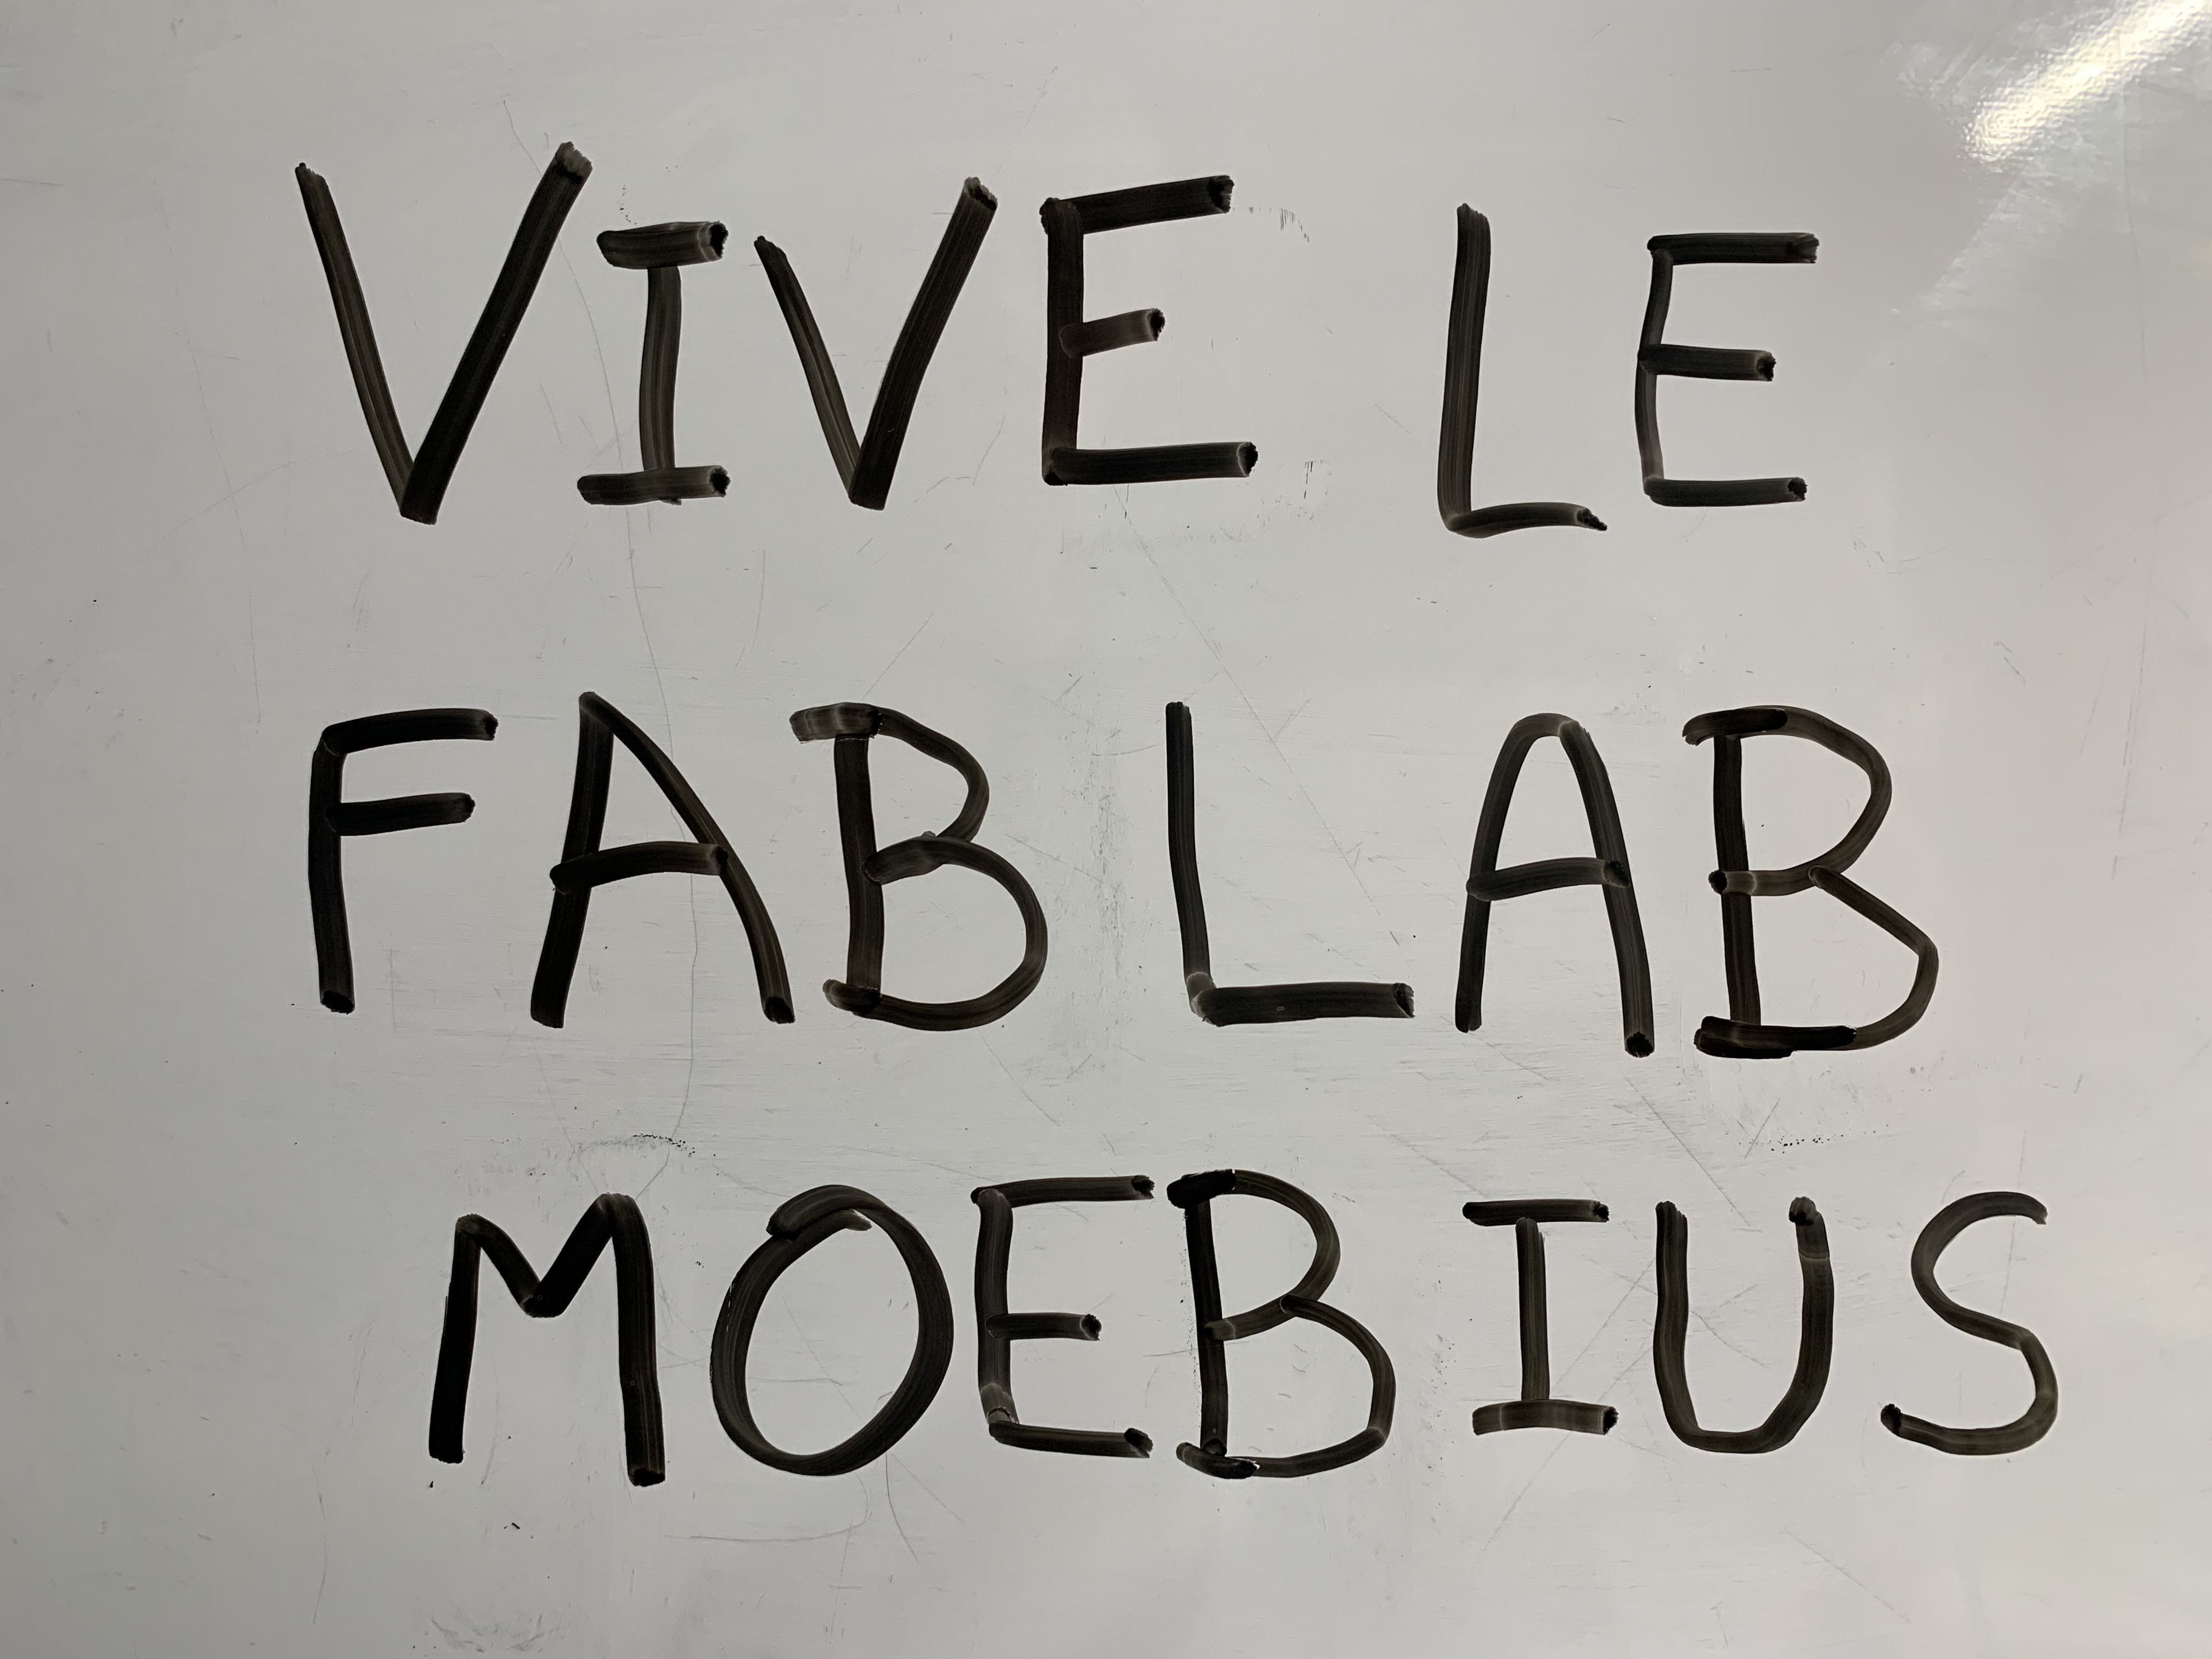 VIVE LE
FAB LAB
MOEBIUS